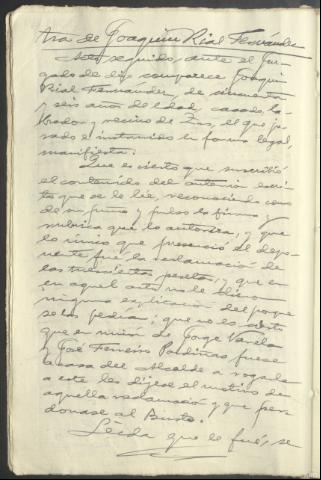 Ara de Joaquin Rial Fernández
Acto seguido, ante el Juz-
gado de dis comparece Joaquin
Rial Fernandez, de cincuenta
y seis años de edad, casado, la-
brador y vecino de Zas, el que ju-
rado e instruido en forma legal,
manifiesta:
Que es cierto que suscribió
el contenido del anterior escri-
to que se le lee, reconociendo como
de su puño y pulso la firma y
rubrica que lo autoriza, y que
lo unico que presenció el depo-
nente fué la reclamacion de
las trescientas pesetas, y que en
en aquel acto no le dieron
ninguna explicacion del porque
se las pedia; que no es cierto
que en unión de Jorge Varela
y José Ferreiro Pordiñas fuese
a casa del Alcalde a rogarle
a este les dijese el motivo de
aquella reclamacion y que per-
donase al Busto.
Leida que le fué, se